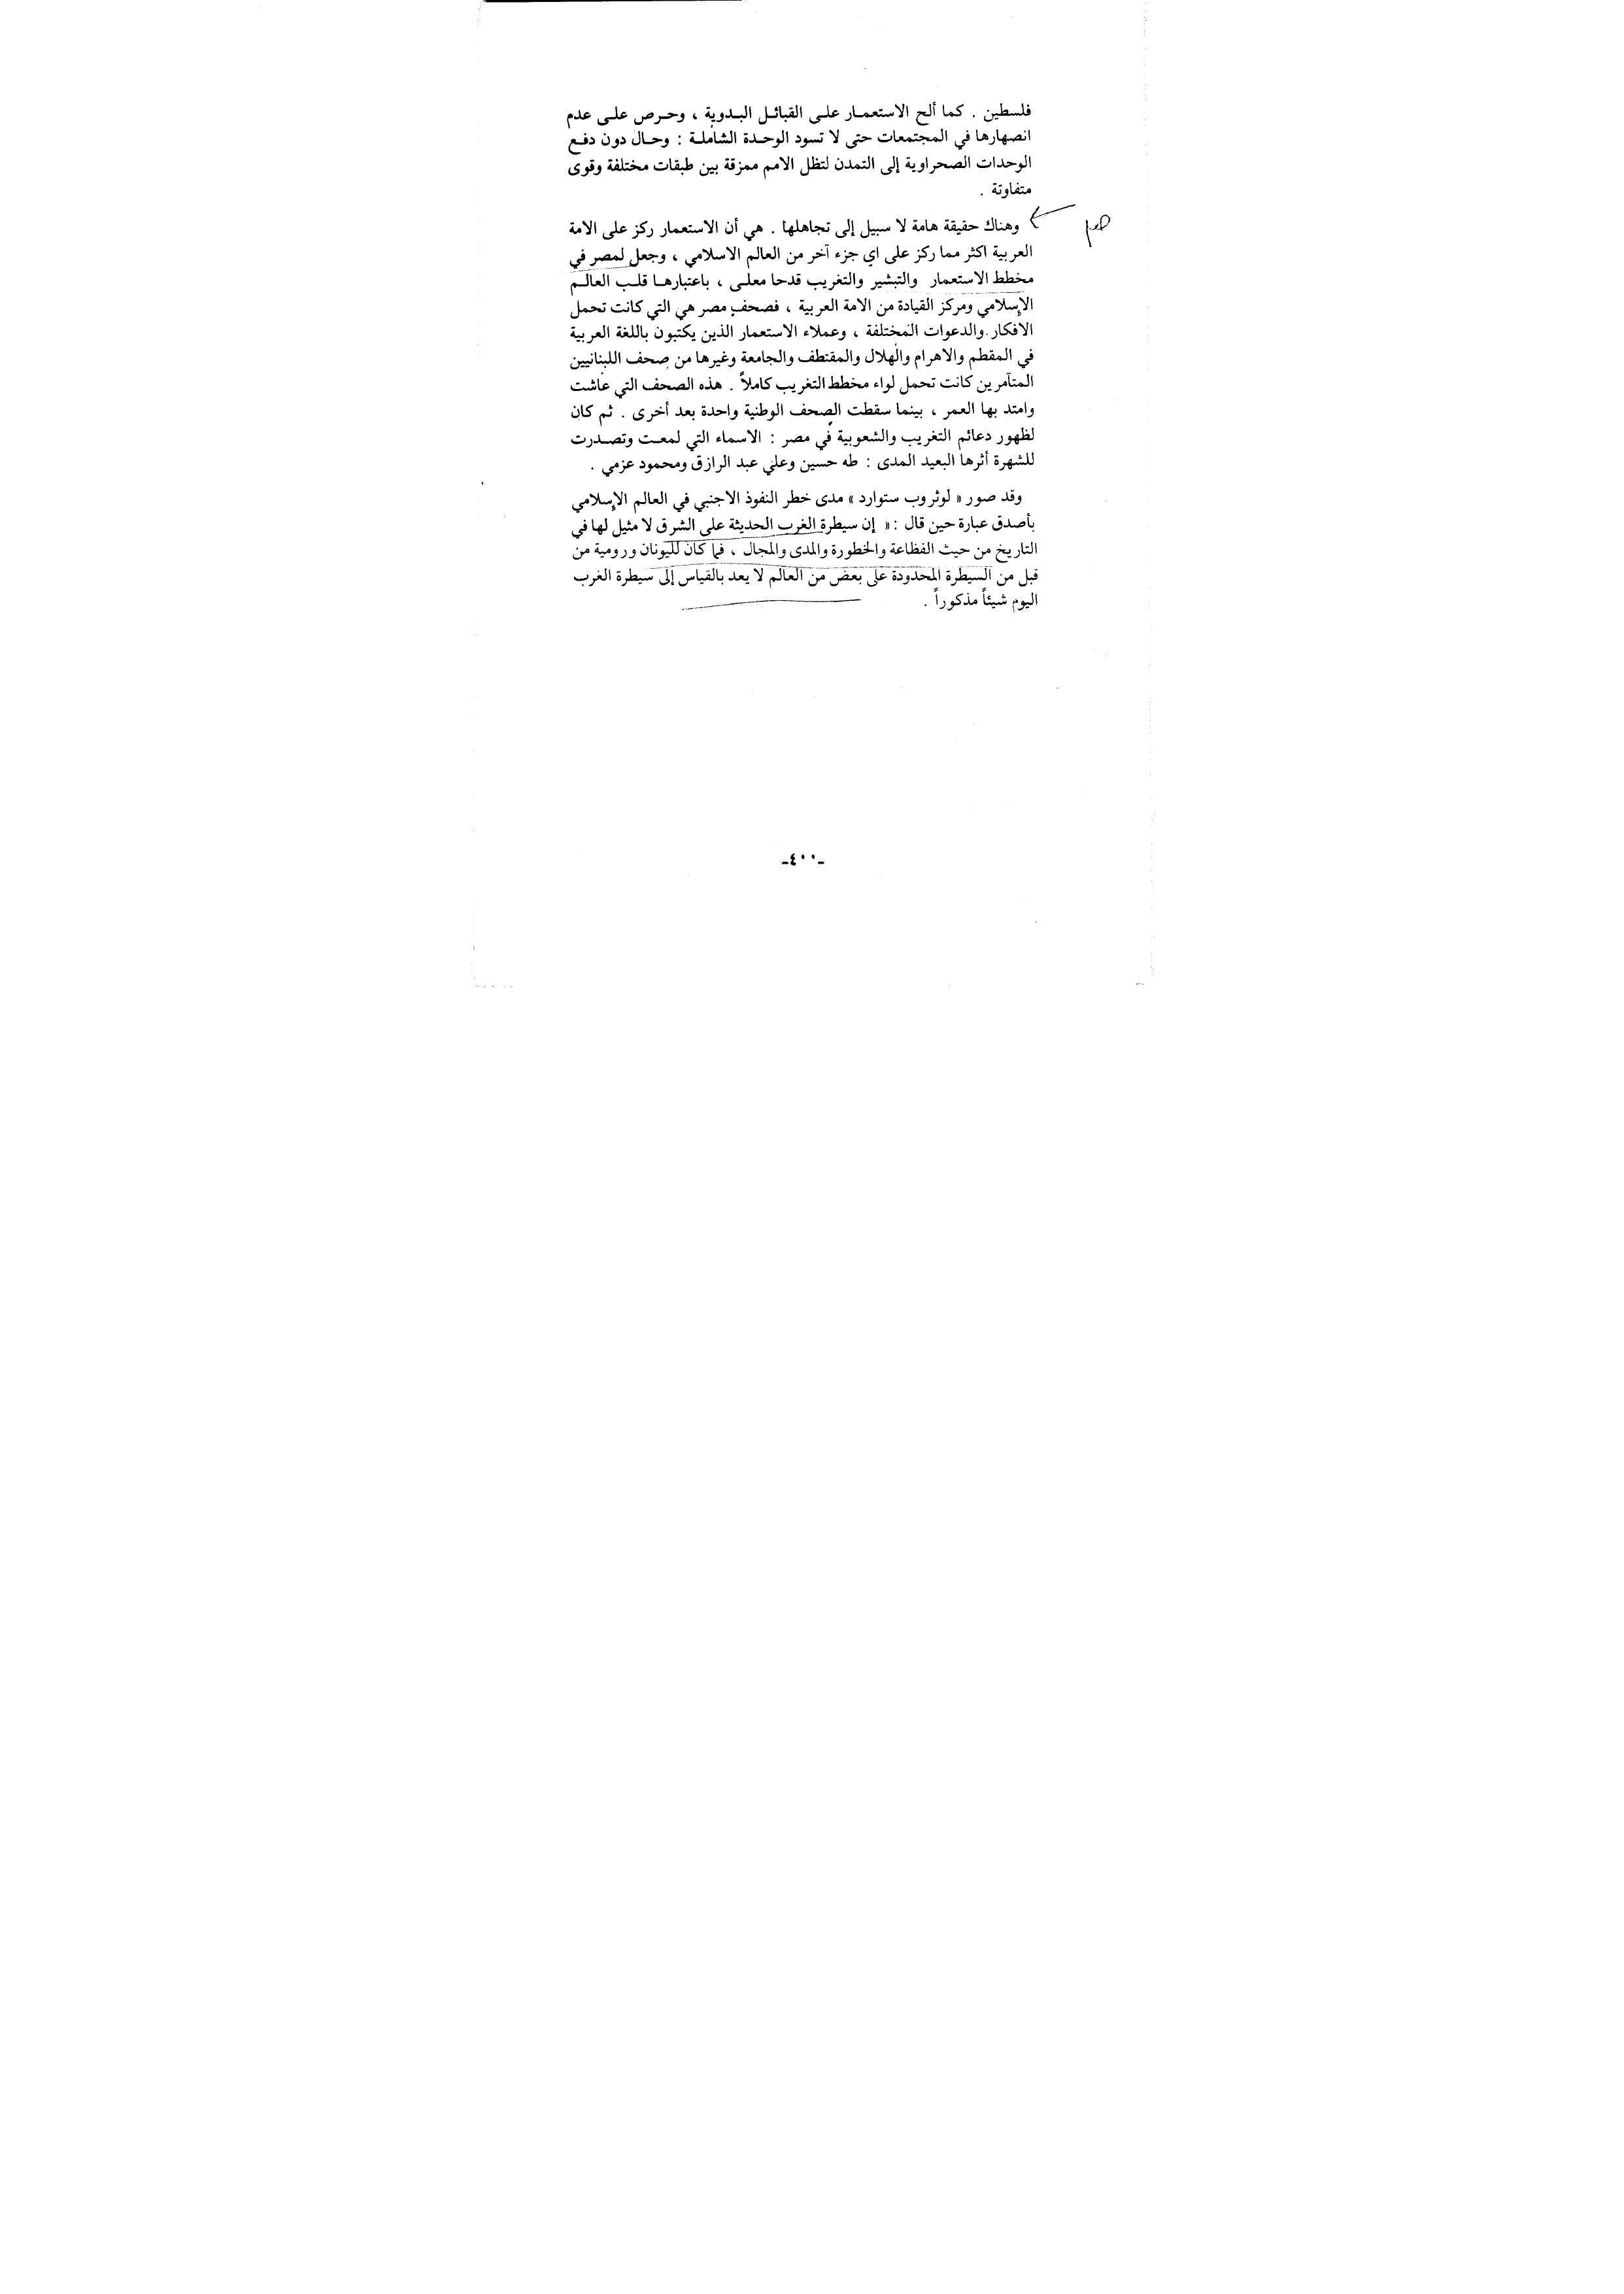 فلسطين . كما ألح الاستعمار على القبائل البدوية ، وحرص على عدم
انصهارها في المجتمعات حتى لا تسود الوحدة الشاملة : وحال دون دفع
الوحدات الصحراوية إلى التمدن لتظل الامم ممزقة بين طبقات مختلفة وقوى
متفاوتة .
وهناك حقيقة هامة لا سبيل إلى تجاهلها . هي أن الاستعمار ركز على الامة
العربية اكثر مما ركز على اي جزء آخر من العالم الاسلامي ، وجعل لمصر في
مخطط الاستعمار والتبشير والتغريب قدحا معلى ، باعتبارها قلب العالم
الإسلامي ومركز القيادة من الامة العربية ، فصحف مصر هي التي كانت تحمل
الافكار والدعوات المختلفة ، وعملاء الاستعمار الذين يكتبون باللغة العربية
في المقطم والاهرام والهلال والمقتطف والجامعة وغيرها من صحف اللبنانيين
المتآمرين كانت تحمل لواء مخطط التغريب كاملاً . هذه الصحف التي عاشت
وامتد بها العمر ، بينما سقطت الصحف الوطنية واحدة بعد أخرى . ثم كان
لظهور دعائم التغريب والشعوبية في مصر : الاسماء التي لمعت وتصدرت
للشهرة أثرها البعيد المدى : طه حسين وعلي عبد الرازق ومحمود عزمي .
وقد صور « لوثروب ستوارد » مدى خطر النفوذ الاجنبي في العالم الإسلامي
بأصدق عبارة حين قال : « إن سيطرة الغرب الحديثة على الشرق لا مثيل لها في
التاريخ من حيث الفظاعة والخطورة والمدى والمجال ، فما كان لليونان ورومية من
قبل من السيطرة المحدودة على بعض من العالم لا يعد بالقياس إلى سيطرة الغرب
اليوم شيئاً مذكوراً .
-٤٠٠-